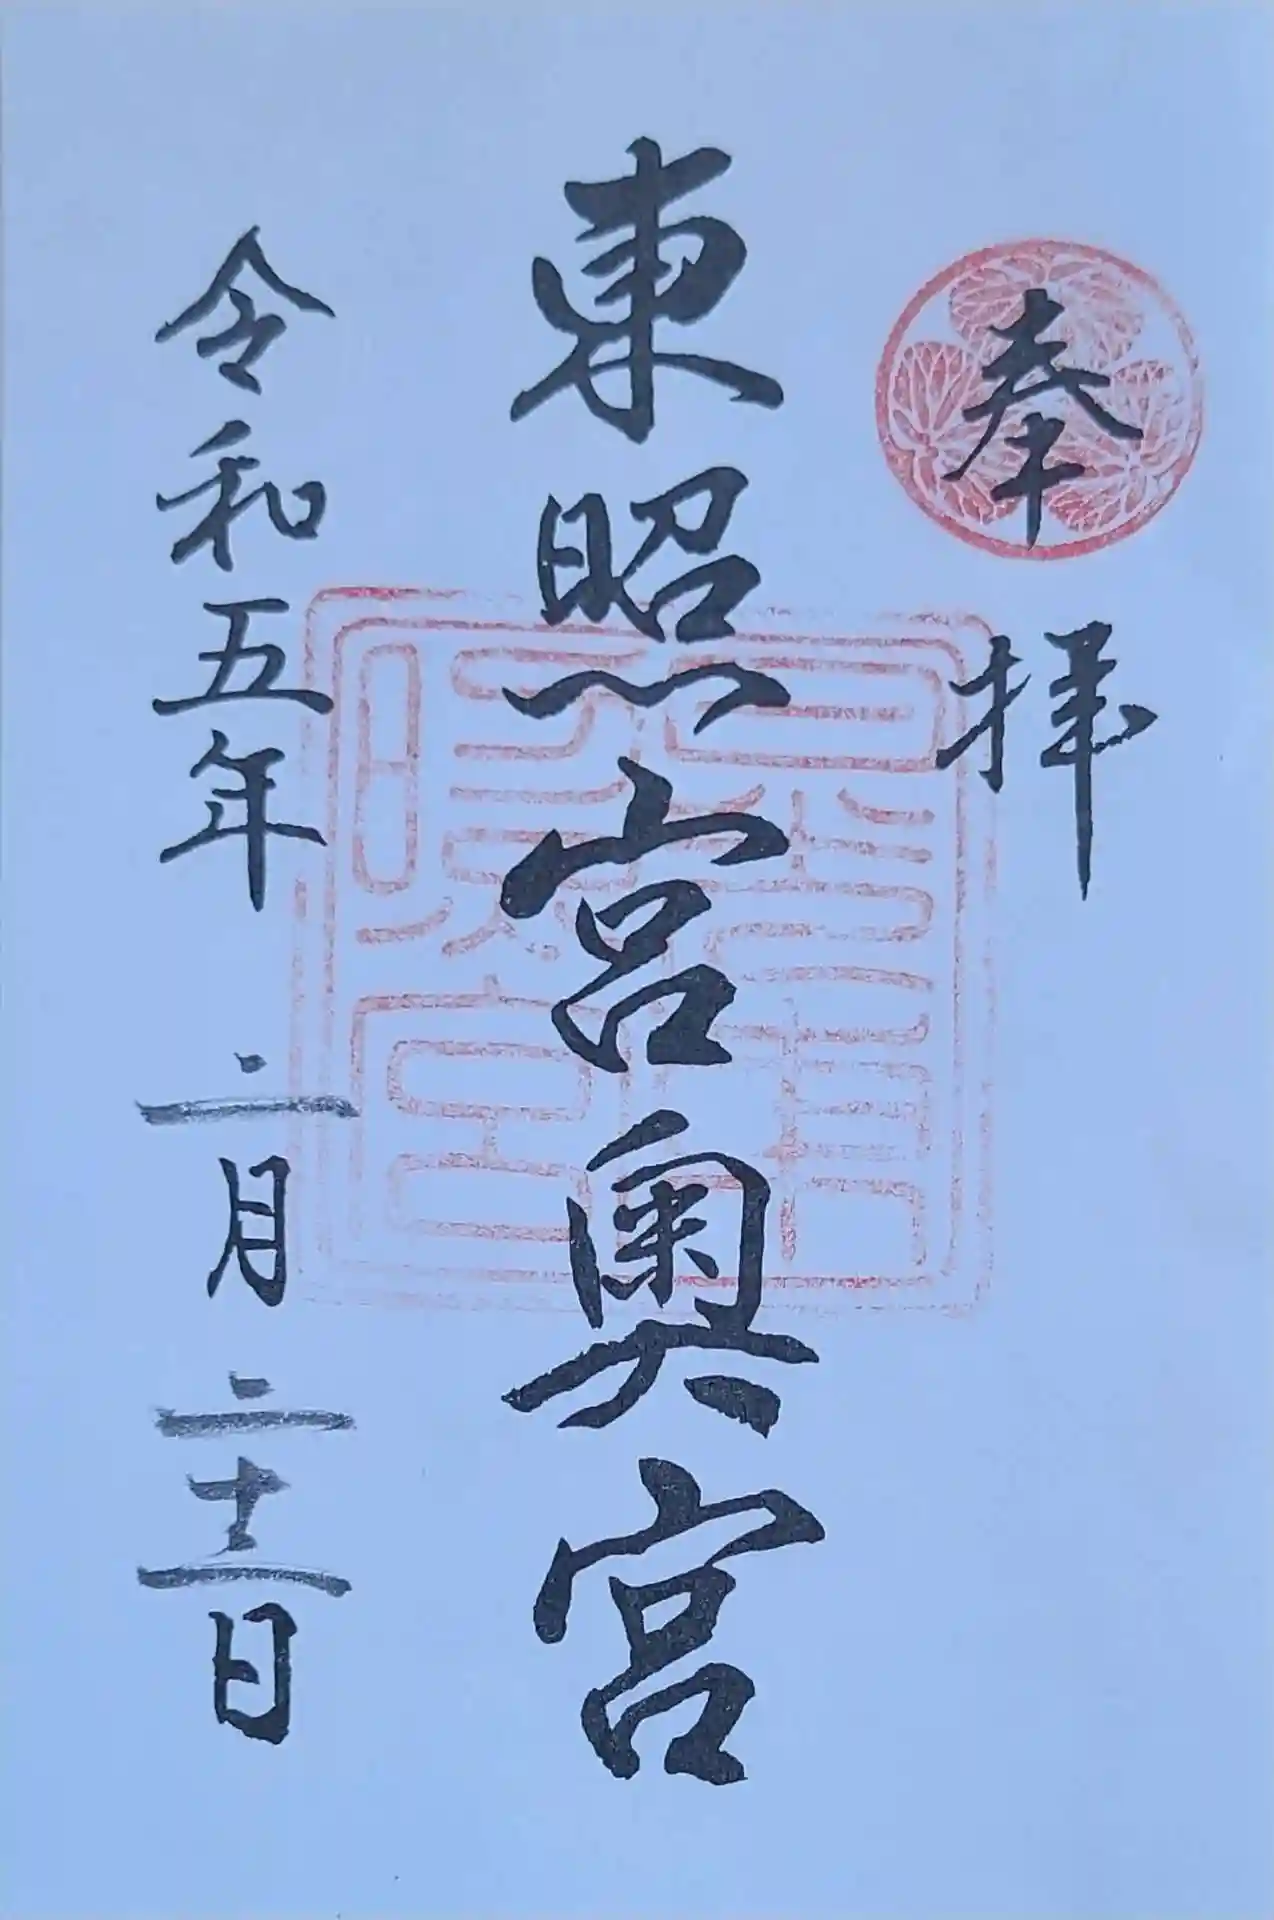 奉拝
東照宮奥宮
令和五年 二月 二十二日